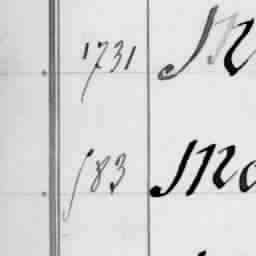 1731 M
183 Mo